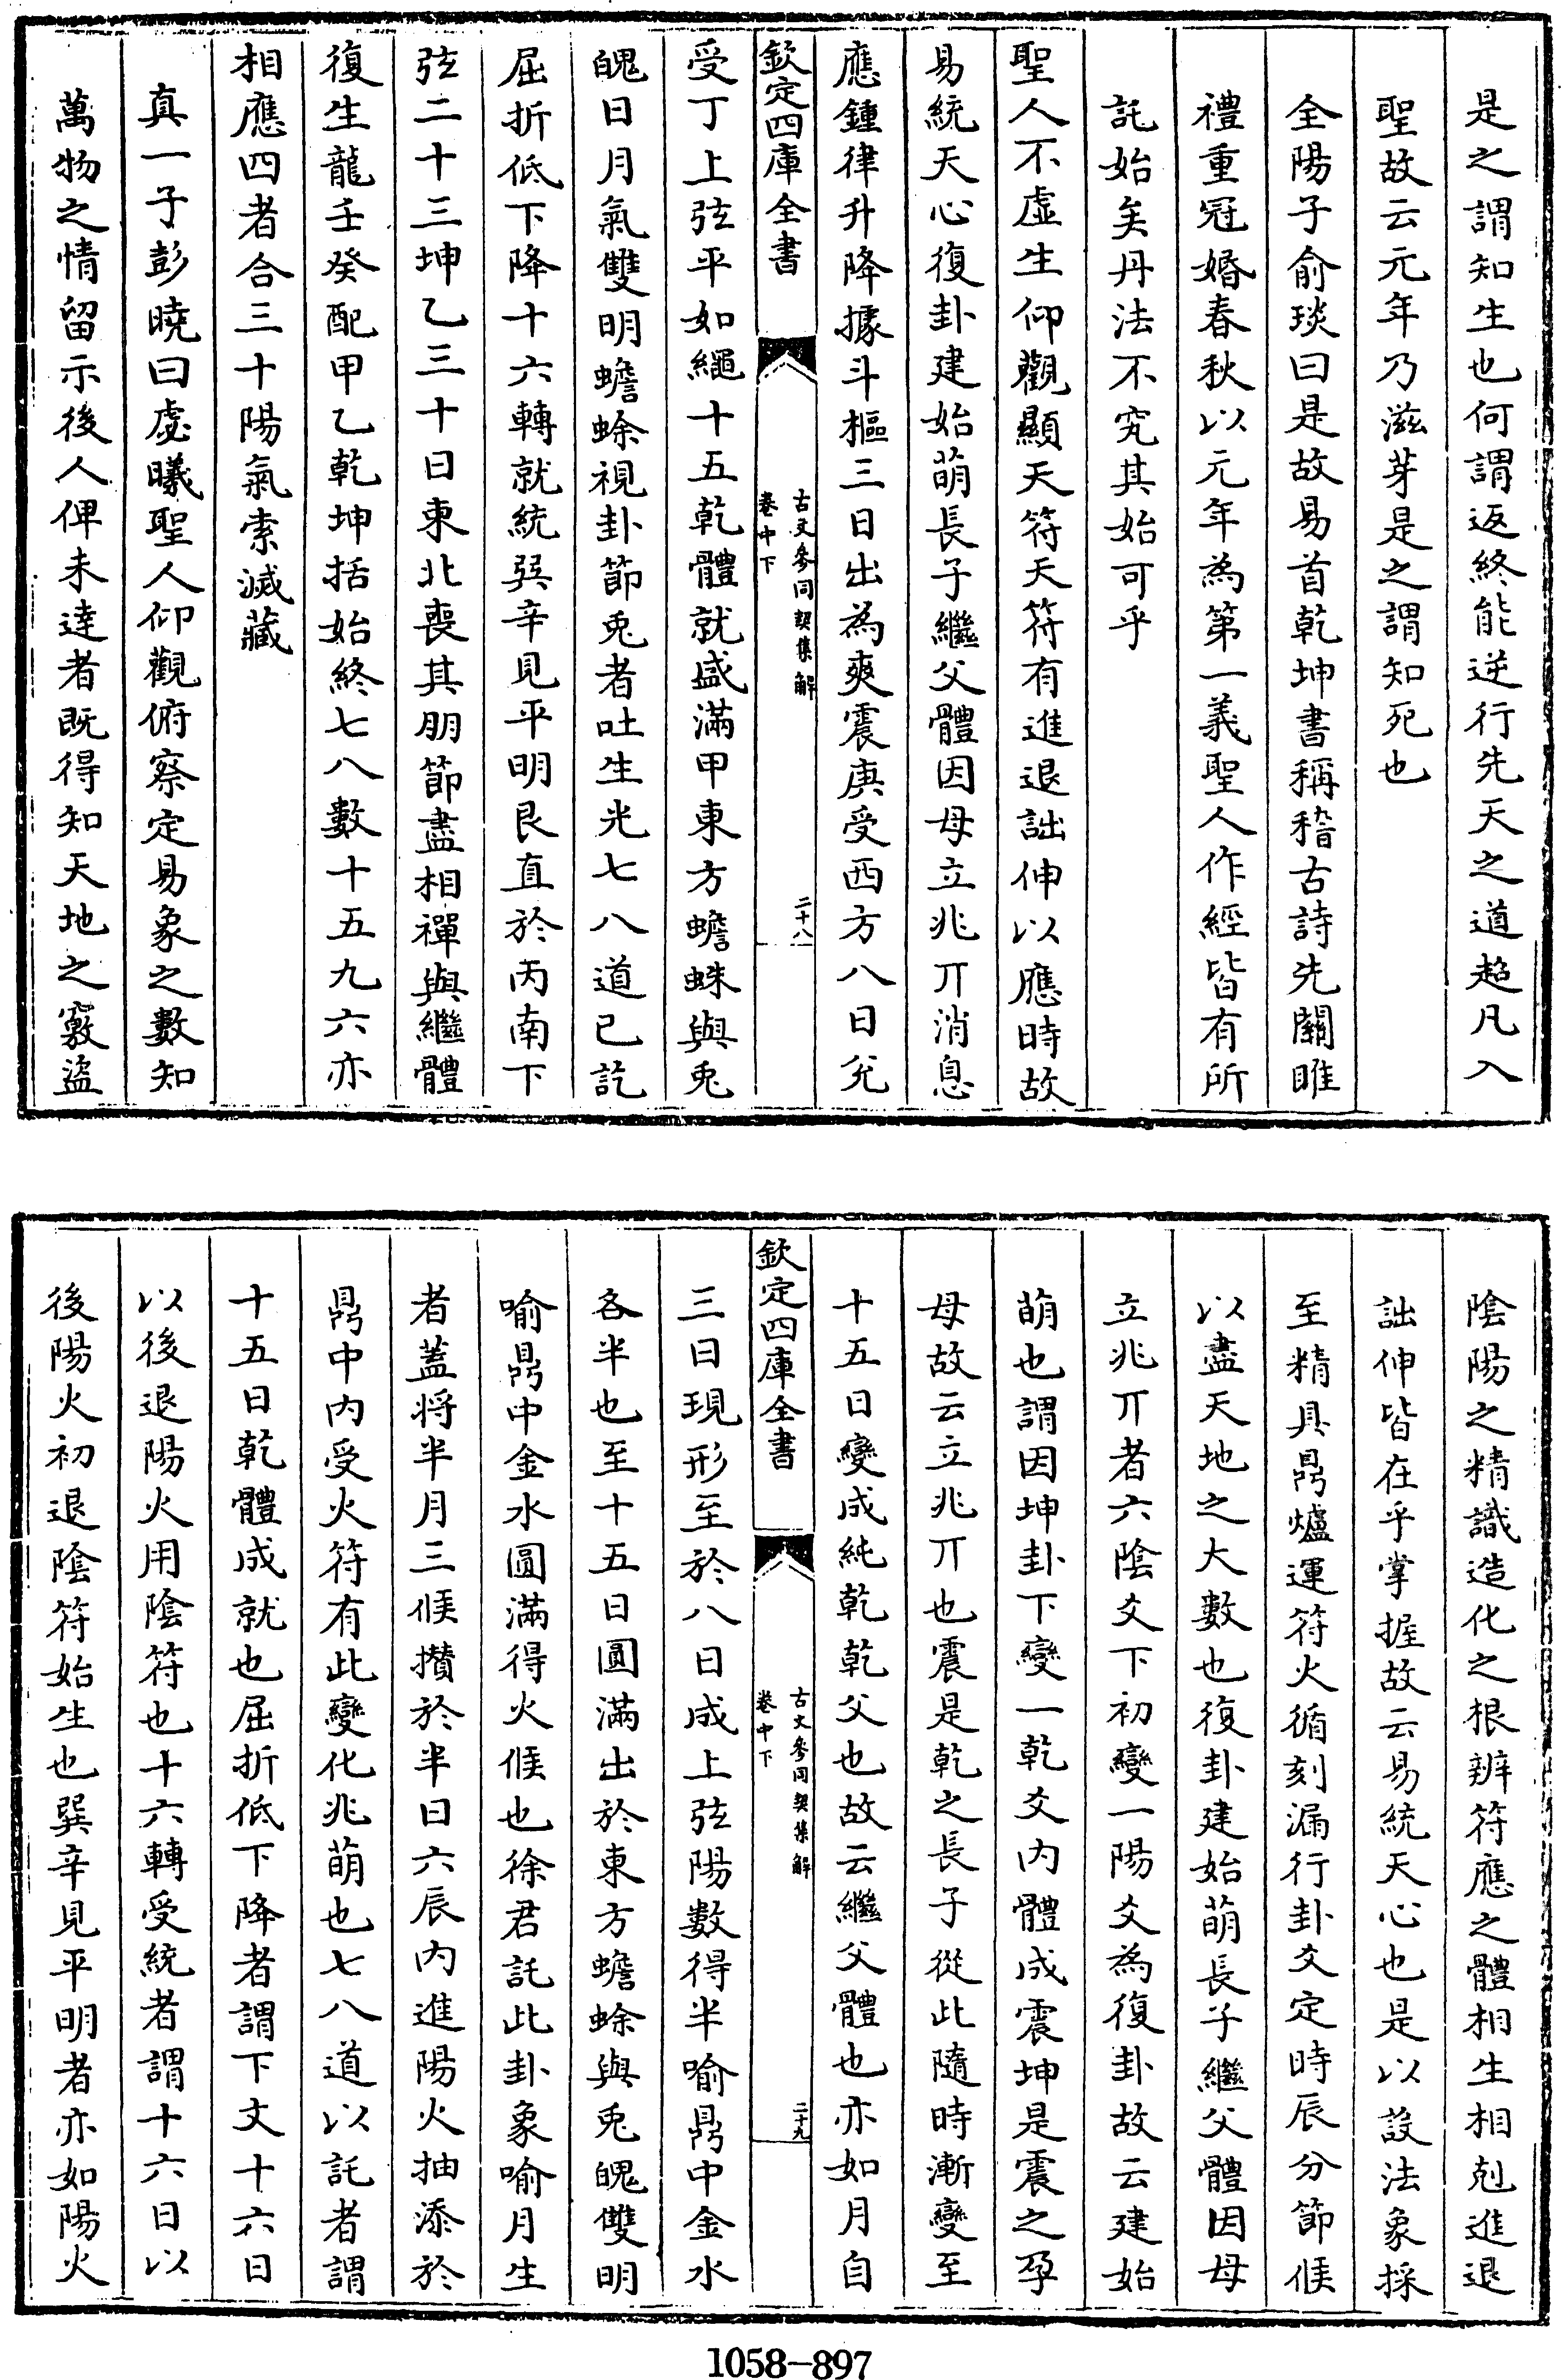 是之謂知生也何謂返終能逆行先天之道超凡入
聖故云元年乃滋芽是之謂知死也
全陽子俞琰曰是故易首乾坤書稱稽古詩先關雎
禮重冠婚春秋以元年為第一義聖人作經皆有所
託始矣丹法不究其始可乎
聖人不虛生仰觀顯天符天符有進退詘伸以應時故
易統天心復卦建始萌長子繼父體因母立兆丌消息
應鍾律升降據斗樞三日出為爽震庚受西方八日兊
欽定四庫全書
古文參同契集解
卷中下
二十八
受丁上弦平如繩十五乾體就盛滿甲東方蟾蛛與兎
魄日月氣雙明蟾蜍視卦節兎者吐生光七八道已訖
屈折低下降十六轉就統巽辛見平明艮直於丙南下
弦二十三坤乙三十日東北喪其朋節盡相禪與繼體
復生龍壬癸配甲乙乾坤括始終七八數十五九六亦
相應四者合三十陽氣索滅藏
真一子彭曉曰處曦聖人仰觀俯察定易象之數知
萬物之情留示後人俾未達者既得知天地之竅盜
陰陽之精識造化之根辨符應之體相生相剋進退
詘伸皆在乎掌握故云易統天心也是以設法象採
至精具鼎爐運符火循刻漏行卦爻定時辰分節候
以盡天地之大數也復卦建始萌長子繼父體因母
立兆丌者六陰爻下初變一陽爻為復卦故云建始
萌也謂因坤卦下變一乾爻內體成震坤是震之孕
母故云立兆丌也震是乾之長子從此隨時漸變至
十五日變成純乾乾父也故云繼父體也亦如月自
欽定四庫全書
古文參同契集解
卷中下
二十九
三日現形至於八日成上弦陽數得半喻鼎中金水
各半也至十五日圓滿出於東方蟾蜍與兎魄雙明
喻鼎中金水圓滿得火候也徐君託此卦象喻月生
者蓋將半月三候攢於半日六辰內進陽火抽添於
鼎中內受火符有此變化兆萌也七八道以託者謂
十五日乾體成就也屈折低下降者謂下文十六日
以後退陽火用陰符也十六轉受統者謂十六日以
後陽火初退陰符始生也巽辛見平明者亦如陽火
1058-897